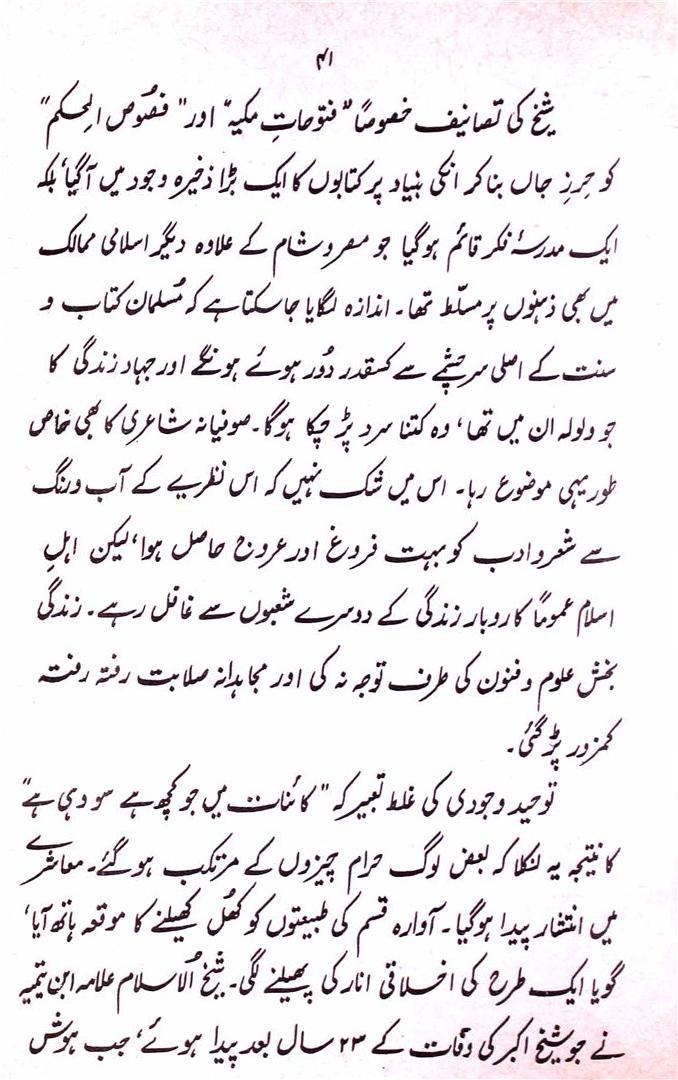 ۴۱
شیخ کی تصانیف خصوصاً "فتوحاتِ مکیہ" اور "فصُوص الحِکم"
کو حِرزِ جاں بنا کر انکی بنیاد پر کتابوں کا ایک بڑا ذخیرہ وجود میں آگیا، بلکہ
ایک مدرسۂ فکر قائم ہوگیا جو مصر و شام کے علاوہ دیگر اسلامی ممالک
میں بھی ذہنوں پر مسلّط تھا۔ اندازہ لگایا جاسکتا ہے کہ مُسلمان کتاب و
سنت کے اصلی سرچشمے سے کسقدر دُور ہوئے ہونگے اور جہاد زندگی کا
جو ولولہ ان میں تھا، وہ کتنا سرد پڑ چکا ہوگا۔ صوفیانہ شاعری کا بھی خاص
طور یہی موضوع رہا۔ اس میں شک نہیں کہ اس نظریے کے آب و رنگ
سے شعر و ادب کو بہت فروغ اور عروج حاصل ہوا، لیکن اہلِ
اسلام عموماً کاروبار زندگی کے دوسرے شعبوں سے غافل رہے۔ زندگی
بخش علوم و فنون کی طرف توجہ نہ کی اور مجاہدانہ صلابت رفتہ رفتہ
کمزور پڑگئی۔
توحید وجودی کی غلط تعبیر کہ "کائنات میں جو کچھ ہے سو وہی ہے"
کا نتیجہ یہ نکلا کہ بعض لوگ حرام چیزوں کے مرتکب ہوگئے۔ معاشرے
میں انتشار پیدا ہوگیا۔ آوارہ قسم کی طبیعتوں کو کھُل کھیلنے کا موقعہ ہاتھ آیا،
گویا ایک طرح کی اخلاقی انارکی پھیلنے لگی۔ شیخ الُاسلام علامہ ابن تیمیہ
نے جو شیخ اکبر کی وفات کے ۲۳ سال بعد پیدا ہوئے، جب ہوش